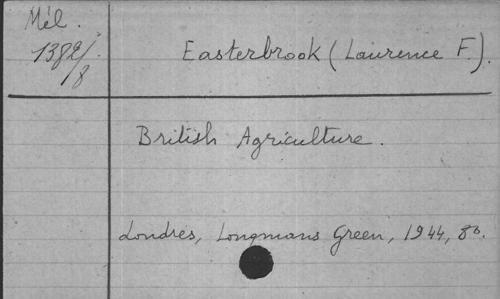 Mél.
1382/8
Easterbrook (Laurence F.).
British Agriculture.
Londres, Longmans Green, 1944, 8º.